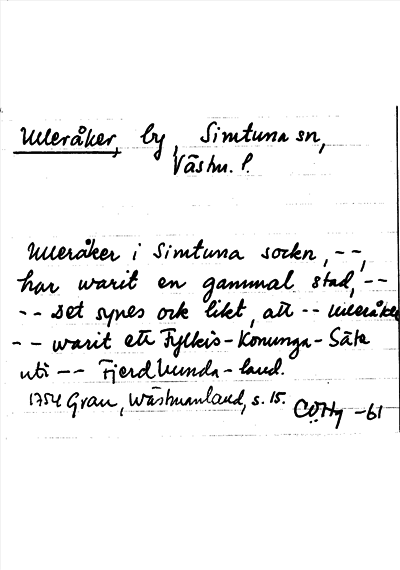 Ulleråker, by, Simtuna sn,
Västm. l.
Ulleråker i Simtuna sockn, --,
har warit en gammal stad, --
-- Det synes ock likt, att -- Ulleråker
-- warit ett Fylkis-Konunga-Säte
uti -- Fjerdhunda-land.
1754 Grau, Wästmanland, s. 15.
-61